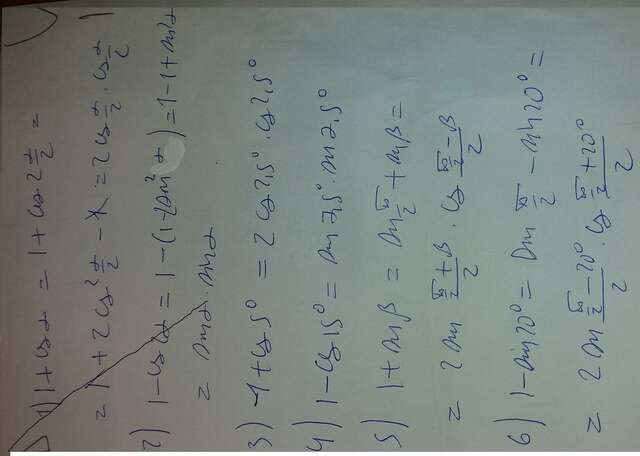 1) 1 + cos α = 1 + cos 2 α/2 =
= 1 + 2 cos² α/2 - 1 = 2 cos α/2 · cos α/2
2) 1 - cos α = 1 - (1 - sin² α) = 1 - 1 + sin² α
= sin α · sin α
3) 1 + cos 5° = 2 cos 2,5° · cos 2,5°
4) 1 - cos 15° = sin 7,5° · sin 7,5°
5) 1 + sin β = sin π/2 + sin β =
= 2 sin (π/2 + β)/2 · cos (π/2 - β)/2
6) 1 - sin 20° = sin π/2 - sin 20° =
= 2 sin (π/2 - 20°)/2 · cos (π/2 + 20°)/2